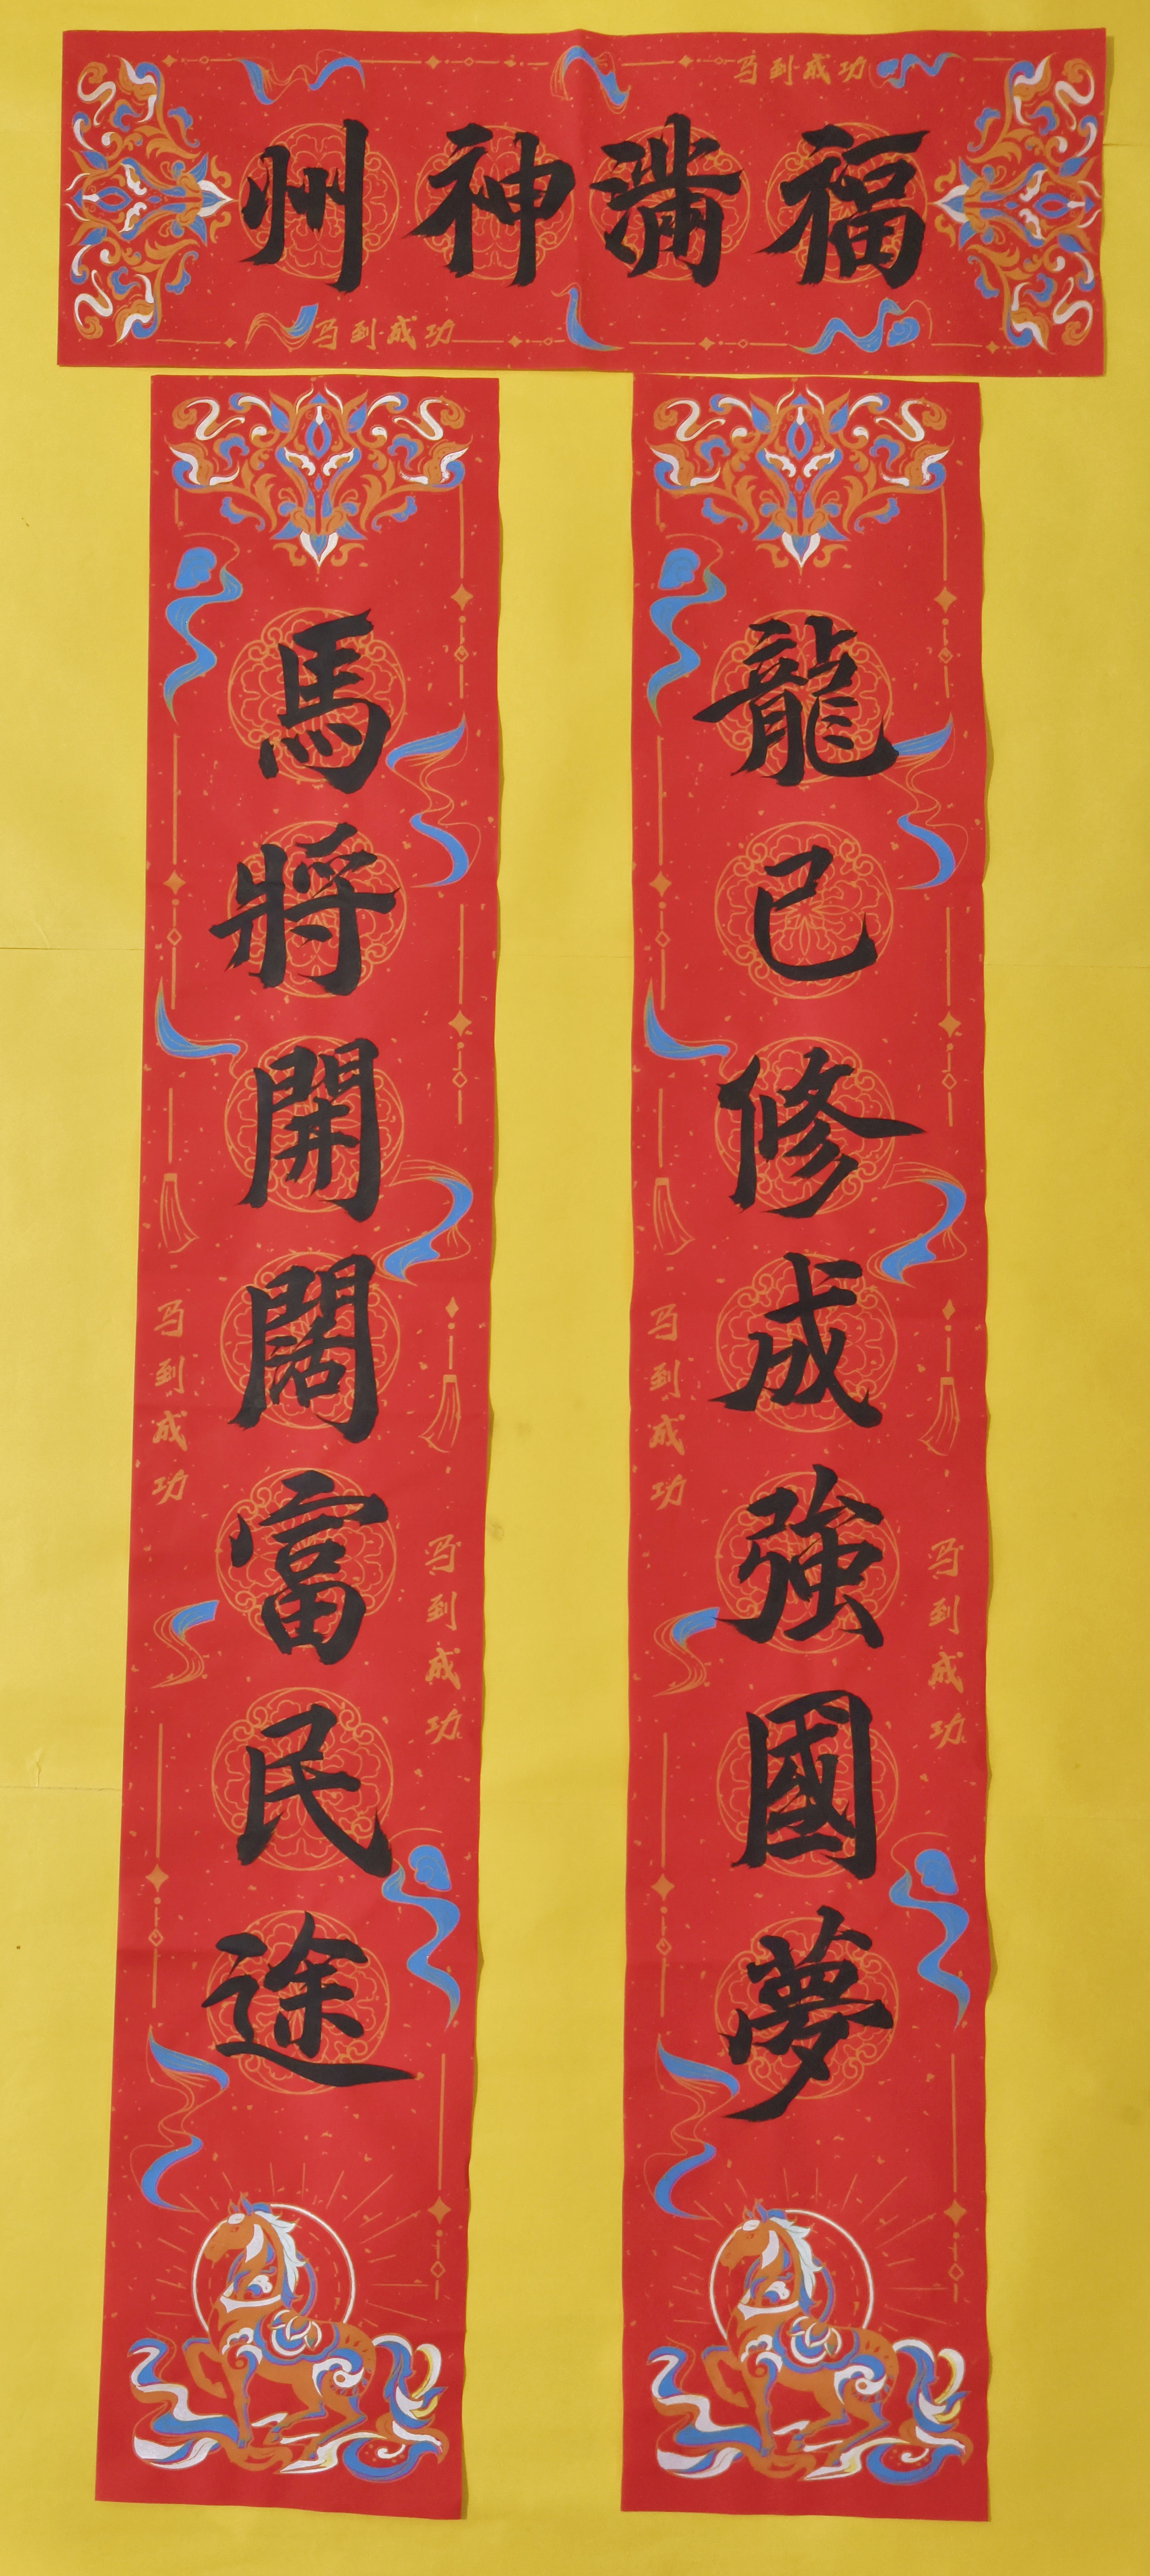 福滿神州
龍已修成強國夢
馬將開闊富民途
马到成功
马到成功
马到成功
马到成功
马到成功
马到成功